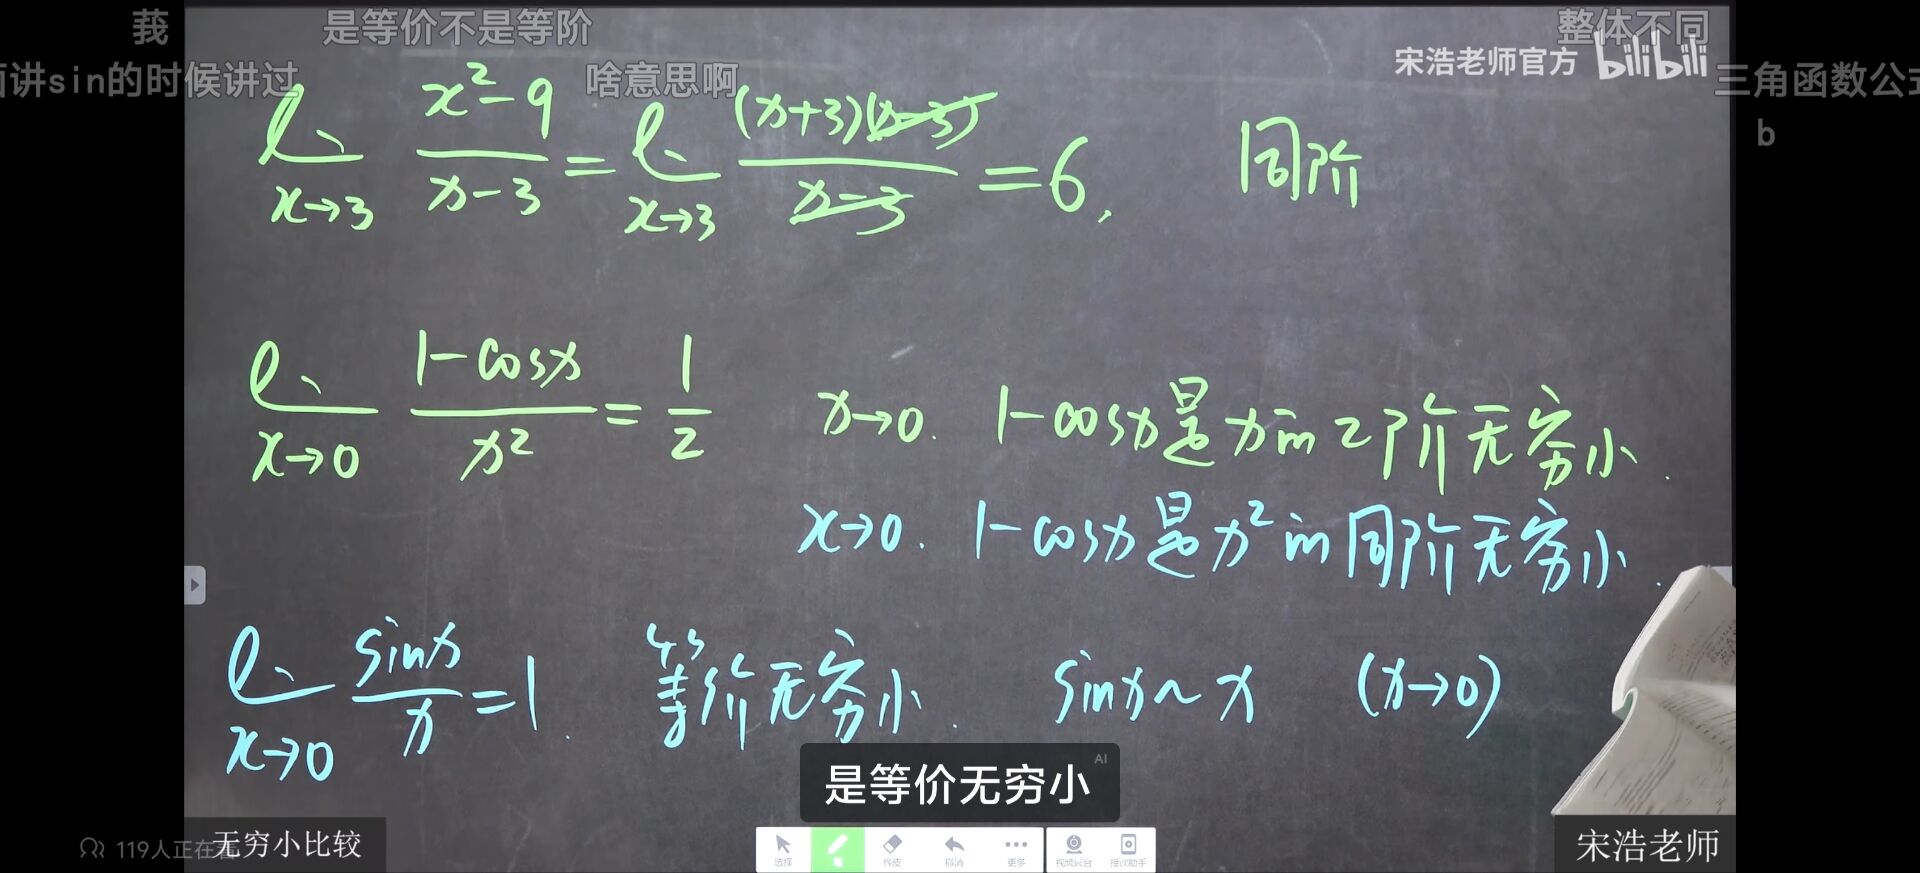 莪 是等价不是等阶 整体不同
宋浩老师官方 bilibili
面讲sin的时候讲过 啥意思啊 三角函数公式
b
lim x→3 x²-9 / x-3 = lim x→3 (x+3)(x-3) / x-3 = 6, 同阶
lim x→0 1-cosx / x² = 1/2 x→0. 1-cosx是x的2阶无穷小.
x→0. 1-cosx是x²的同阶无穷小.
lim x→0 sinx / x = 1. 等价无穷小. sinx~x (x→0)
AI
是等价无穷小
119人正在看
无穷小比较
选择 笔 橡皮 撤消 更多 视频展台 授课助手
宋浩老师